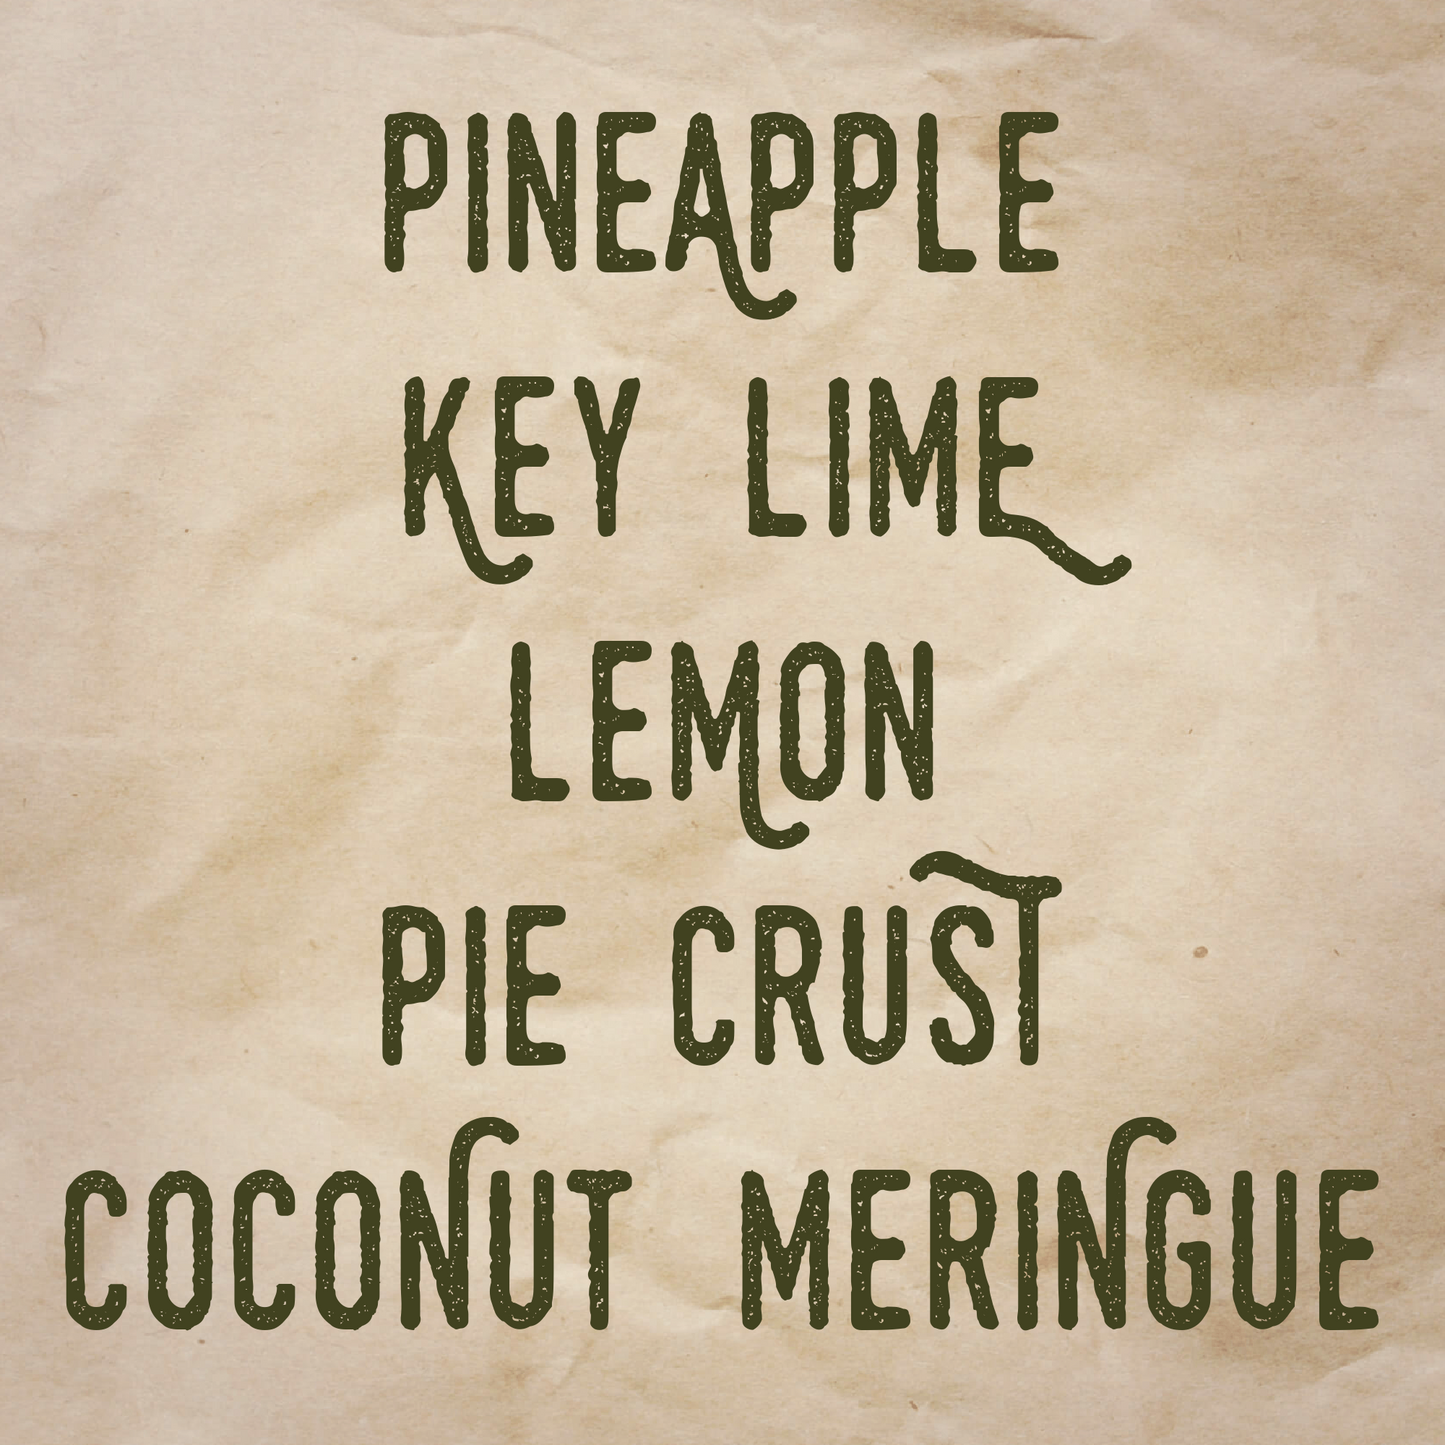 PINEAPPLE
KEY LIME
LEMON
PIE CRUST
COCONUT MERINGUE